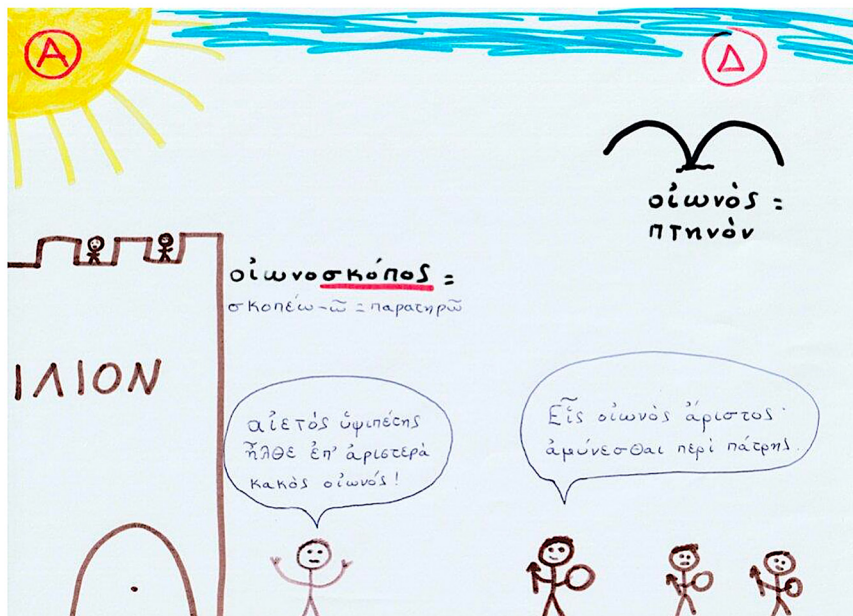 Α
Δ
οἰωνὸς =
πτηνόν
οἰωνοσκόπος =
σκοπέω-ῶ = παρατηρῶ
ΙΛΙΟΝ
αἰετὸς ὑψιπέτης
ἦλθε ἐπ' ἀριστερὰ
κακὸς οἰωνός!
Εἷς οἰωνὸς ἄριστος·
ἀμύνεσθαι περὶ πάτρης.